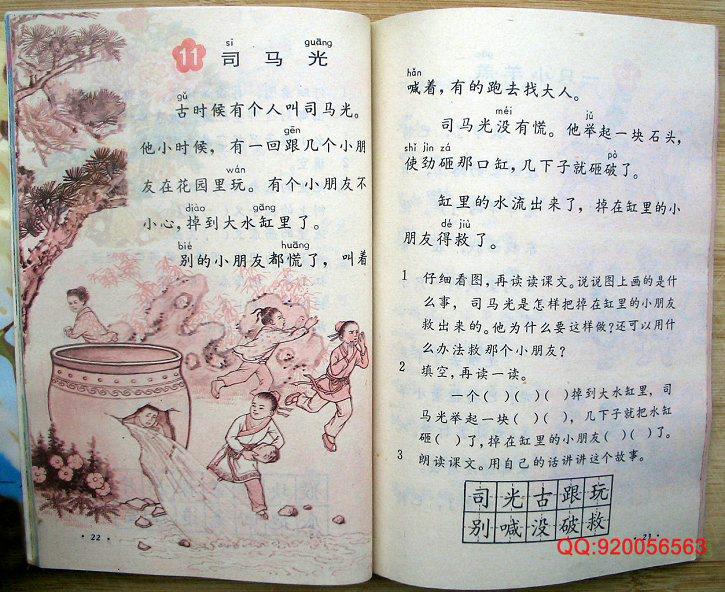 sī guāng
11 司马光
gǔ
古时候有个人叫司马光。
gēn
他小时候，有一回跟几个小朋
wán
友在花园里玩。有个小朋友不
diào gāng
小心，掉到大水缸里了。
bié huāng
别的小朋友都慌了，叫着
·22·
hǎn
喊着，有的跑去找大人。
méi jǔ
司马光没有慌。他举起一块石头，
shǐ jìn zá pò
使劲砸那口缸，几下子就砸破了。
缸里的水流出来了，掉在缸里的小
dé jiù
朋友得救了。
1 仔细看图，再读读课文。说说图上画的是什
么事，司马光是怎样把掉在缸里的小朋友
救出来的。他为什么要这样做？还可以用什
么办法救那个小朋友？
2 填空，再读一读。
一个（ ）（ ）（ ）掉到大水缸里，司
马光举起一块（ ）（ ），几下子就把水缸
砸（ ）了，掉在缸里的小朋友（ ）（ ）了。
3 朗读课文。用自己的话讲讲这个故事。
司光古跟玩
别喊没破救
QQ:920056563